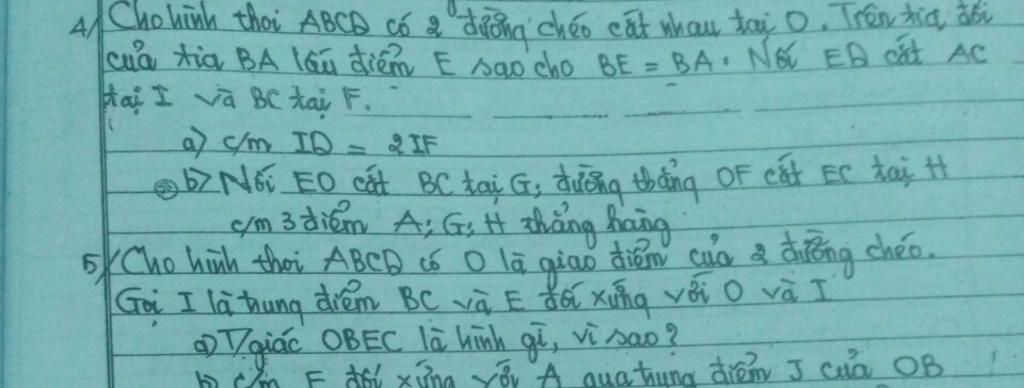 4/ Cho hình thoi ABCD có 2 đường chéo cắt nhau tại O. Trên tia đối
của tia BA lấy điểm E sao cho BE = BA. Nối ED cắt AC
tại I và BC tại F.
a) c/m ID = 2IF
b) Nối EO cắt BC tại G; đường thẳng OF cắt EC tại H
c/m 3 điểm A; G; H thẳng hàng
5/ Cho hình thoi ABCD có O là giao điểm của 2 đường chéo.
Gọi I là trung điểm BC và E đối xứng với O và I
a) T/giác OBEC là hình gì, vì sao?
b) c/m E đối xứng với A qua trung điểm J của OB